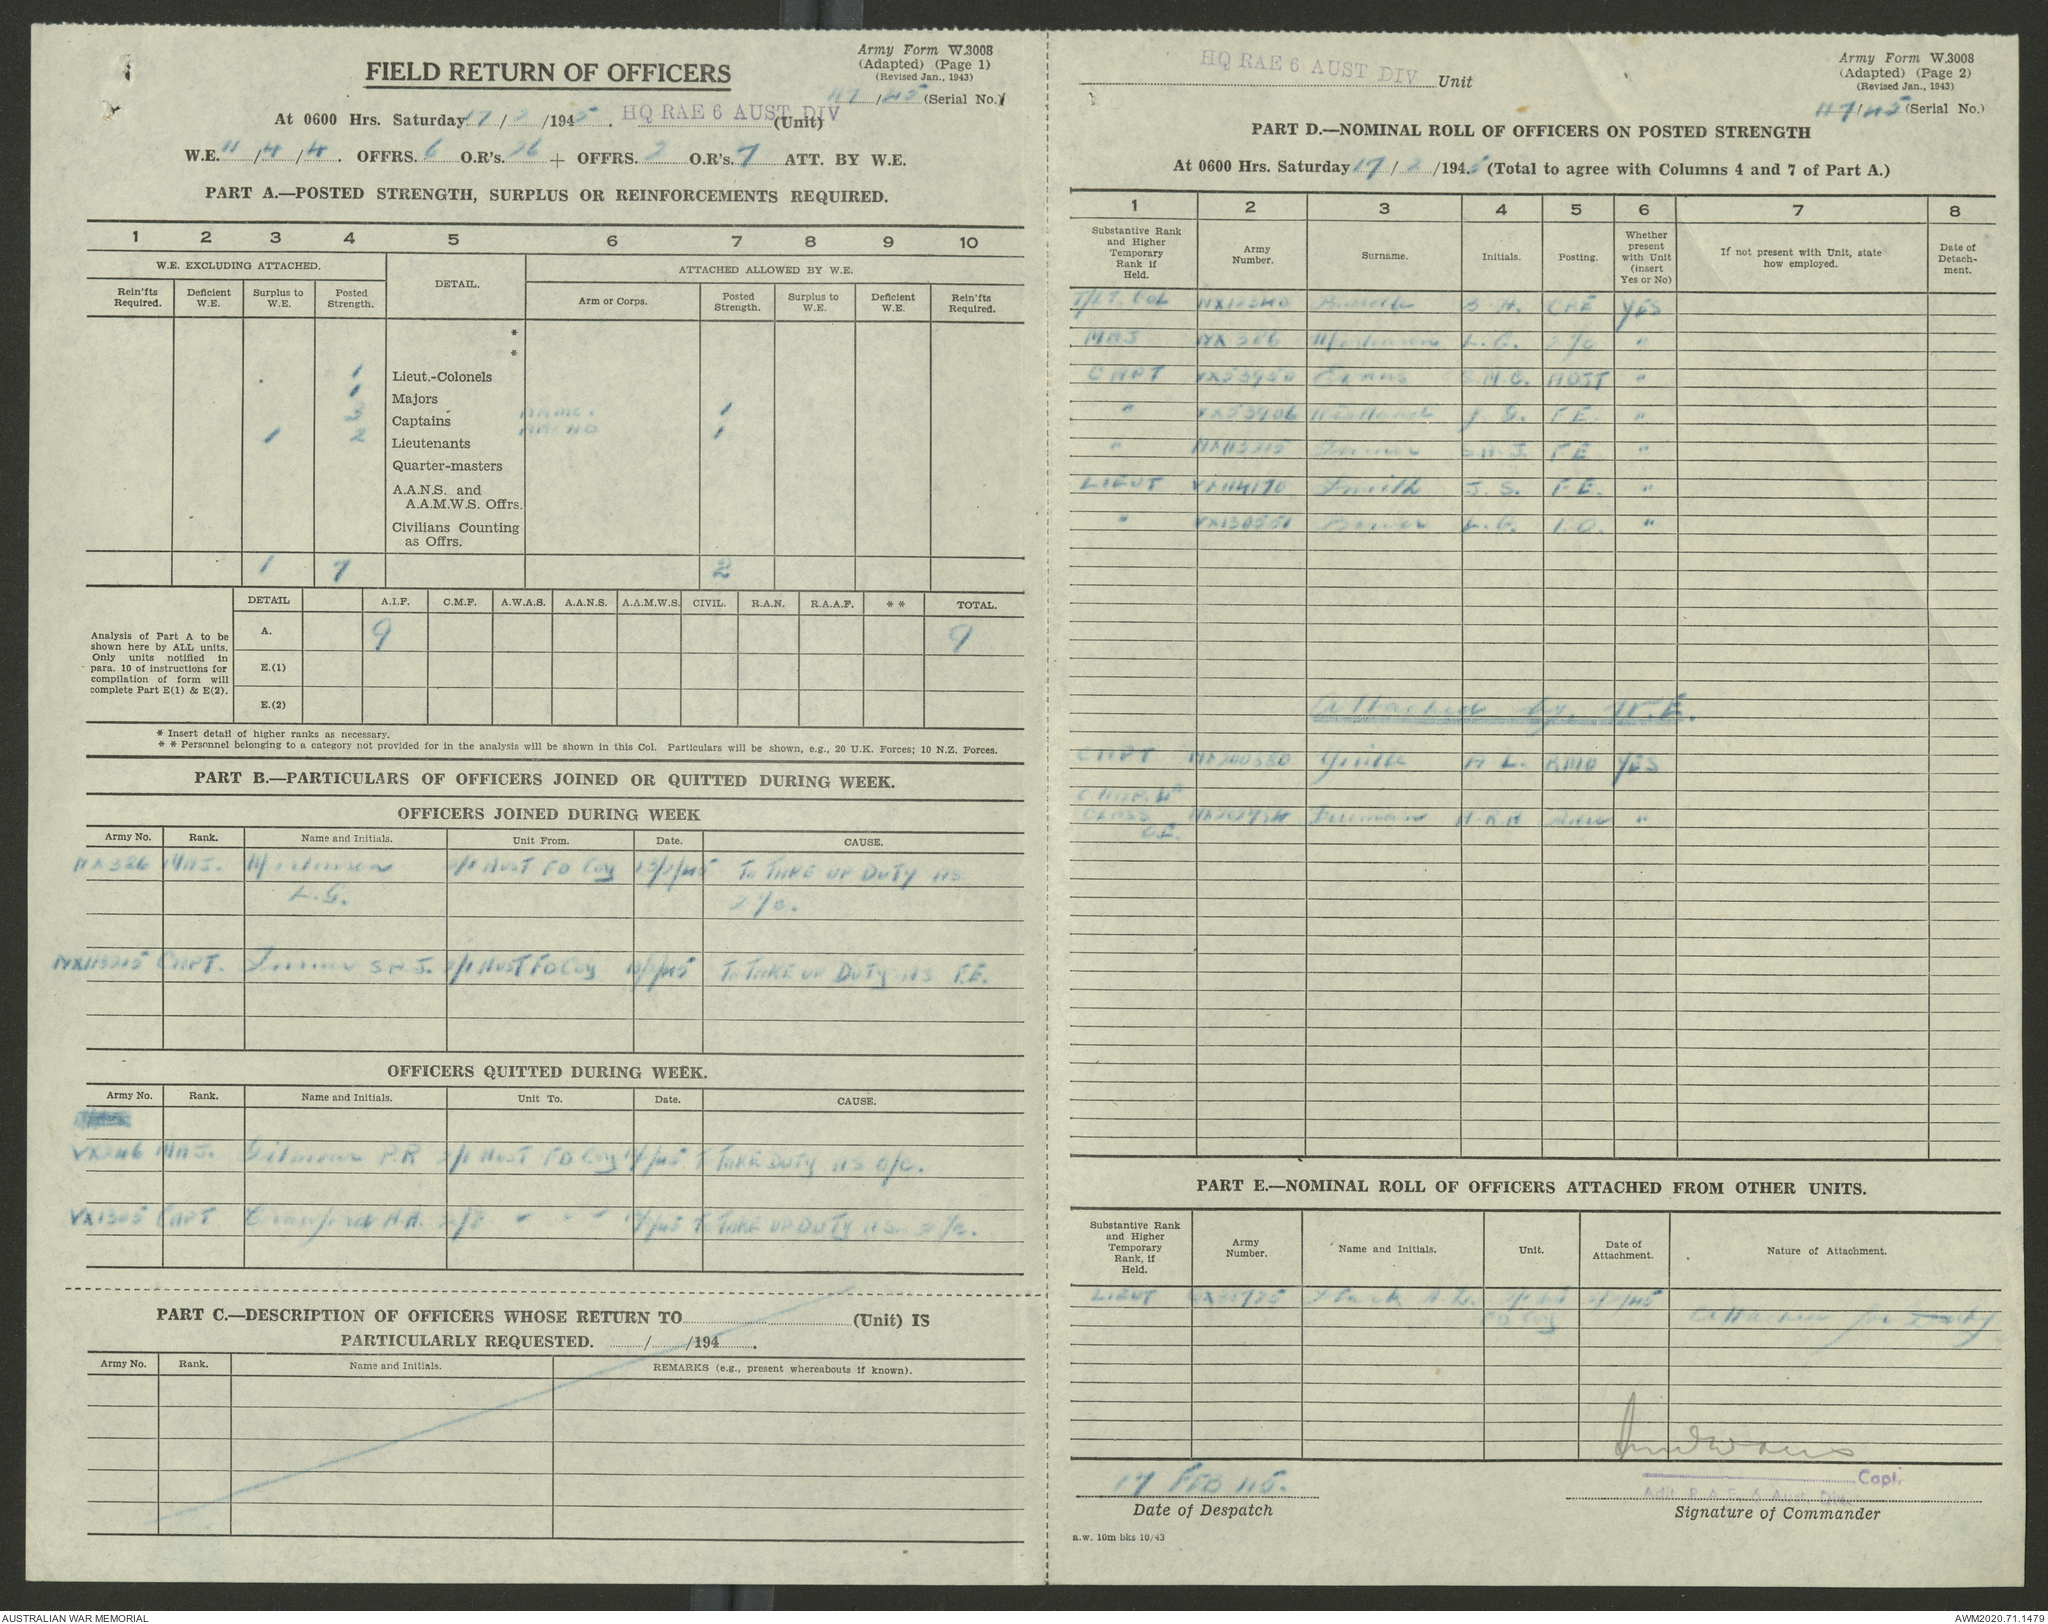 Army Form W.3008
(Adapted) (Page 1)
(Revised Jan., 1943)
FIELD RETURN OF OFFICERS
47/45 (Serial No.)
At 0600 Hrs. Saturday 17/2/1945. HQ RAE 6 AUST DIV (Unit)
W.E. 11/4/4. OFFRS. 6 O.R's. 26 + OFFRS. 2 O.R's. 7 ATT. BY W.E.
PART A.—POSTED STRENGTH, SURPLUS OR REINFORCEMENTS REQUIRED.
1 2 3 4 5 6 7 8 9 10
W.E. EXCLUDING ATTACHED. DETAIL. ATTACHED ALLOWED BY W.E.
Rein'fts Required. Deficient W.E. Surplus to W.E. Posted Strength. Arm or Corps. Posted Strength. Surplus to W.E. Deficient W.E. Rein'fts Required.
*
*
1 Lieut.-Colonels
1 Majors
3 Captains AAMC. 1
1 2 Lieutenants 1
Quarter-masters
A.A.N.S. and
A.A.M.W.S. Offrs.
Civilians Counting
as Offrs.
1 7 2
DETAIL A.I.F. C.M.F. A.W.A.S. A.A.N.S. A.A.M.W.S. CIVIL. R.A.N. R.A.A.F. * * TOTAL.
A. 9 9
E.(1)
E.(2)
Analysis of Part A to be
shown here by ALL units.
Only units notified in
para. 10 of instructions for
compilation of form will
complete Part E(1) & E(2).
* Insert detail of higher ranks as necessary.
* * Personnel belonging to a category not provided for in the analysis will be shown in this Col. Particulars will be shown, e.g., 20 U.K. Forces; 10 N.Z. Forces.
PART B.—PARTICULARS OF OFFICERS JOINED OR QUITTED DURING WEEK.
OFFICERS JOINED DURING WEEK
Army No. Rank. Name and Initials. Unit From. Date. CAUSE.
NX386 MAJ. 2/1 AUST FD Coy 13/2/45 To TAKE UP DUTY AS
L.G. 2/c.
NX113215 CAPT. S.A.J. 2/1 AUST FD Coy /45 To TAKE UP DUTY AS F.E.
OFFICERS QUITTED DURING WEEK.
Army No. Rank. Name and Initials. Unit To. Date. CAUSE.
VX246 MAJ. Gilmour P.R 2/1 AUST FD Coy /45 To TAKE DUTY AS O/C.
CAPT Crawford A.A. 2/2 " " " /45 To TAKE UP DUTY AS 2/c.
PART C.—DESCRIPTION OF OFFICERS WHOSE RETURN TO (Unit) IS
PARTICULARLY REQUESTED. / /194 .
Army No. Rank. Name and Initials. REMARKS (e.g., present whereabouts if known).
Army Form W.3008
(Adapted) (Page 2)
(Revised Jan., 1943)
HQ RAE 6 AUST DIV Unit
47/45 (Serial No.)
PART D.—NOMINAL ROLL OF OFFICERS ON POSTED STRENGTH
At 0600 Hrs. Saturday 17/2/1945 (Total to agree with Columns 4 and 7 of Part A.)
1 2 3 4 5 6 7 8
Substantive Rank and Higher Temporary Rank if Held. Army Number. Surname. Initials. Posting. Whether present with Unit (insert Yes or No) If not present with Unit, state how employed. Date of Detach-ment.
T/LT. COL CRE YES
MAJ NX386 L.G. 2/c "
CAPT VX53950 Evans ADJT "
" J. G. F.E. "
" NX113215 S.A.J. F.E "
LIEUT VX114170 Smith J. S. F.E. "
" I.O. "
Attached by W.E.
CAPT A L. RMO YES
CHAP. 4th
CLASS H.R.A "
PART E.—NOMINAL ROLL OF OFFICERS ATTACHED FROM OTHER UNITS.
Substantive Rank and Higher Temporary Rank, if Held. Army Number. Name and Initials. Unit. Date of Attachment. Nature of Attachment.
LIEUT
FD Coy Attached for Duty
17 FEB 45.
Date of Despatch
Capt.
Adjt. R.A.E. 6 Aust. Div.
Signature of Commander
a.w. 10m bks 10/43
AUSTRALIAN WAR MEMORIAL
AWM2020.71.1479